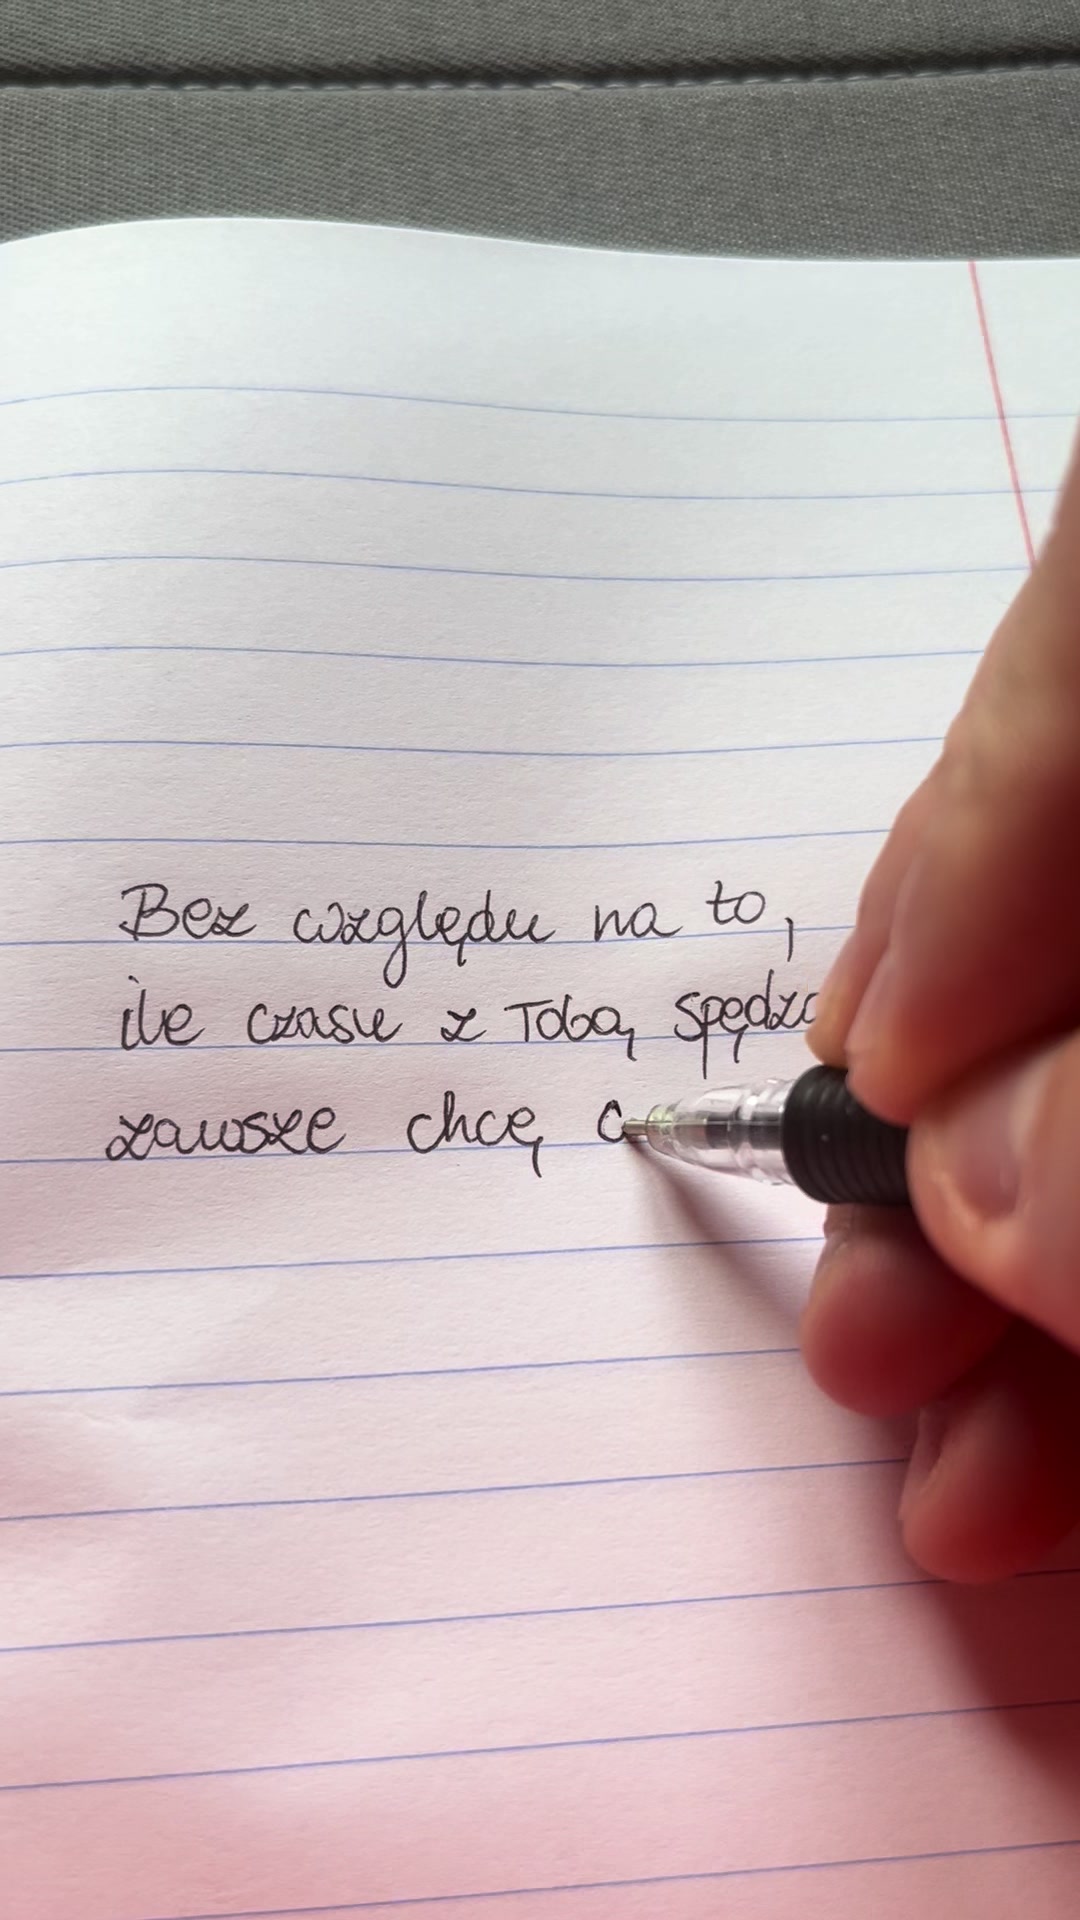 Bez względu na to,
ile czasu z Tobą
zawsze chcę